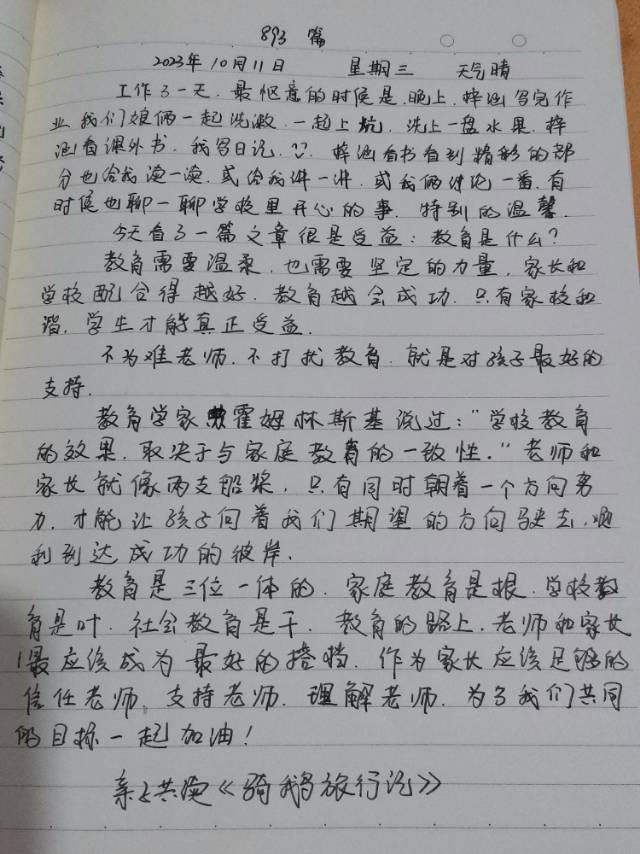 893 篇
2023年10月11日 星期三 天气晴
工作了一天，最惬意的时候是，晚上，梓涵写完作
业，我们娘俩一起洗漱，一起上炕，洗上一盘水果，梓
涵看课外书，我写日记，梓涵看书看到精彩的部
分也给我读一读，或给我讲一讲，或我俩讨论一番，有
时候也聊一聊学校里开心的事，特别的温馨．
今天看了一篇文章很是受益：教育是什么？
教育需要温柔，也需要坚定的力量，家长和
学校配合得越好，教育越会成功，只有家校和
谐，学生才能真正受益．
不为难老师，不打扰教育，就是对孩子最好的
支持．
教育学家霍姆林斯基说过："学校教育
的效果，取决于与家庭教育的一致性．"老师和
家长就像两支船桨，只有同时朝着一个方向努
力，才能让孩子向着我们期望的方向驶去，顺
利到达成功的彼岸．
教育是三位一体的，家庭教育是根，学校教
育是叶，社会教育是干，教育的路上，老师和家长
最应该成为最好的搭档，作为家长应该足够的
信任老师，支持老师，理解老师，为了我们共同
的目标一起加油！
亲子共读《骑鹅旅行记》